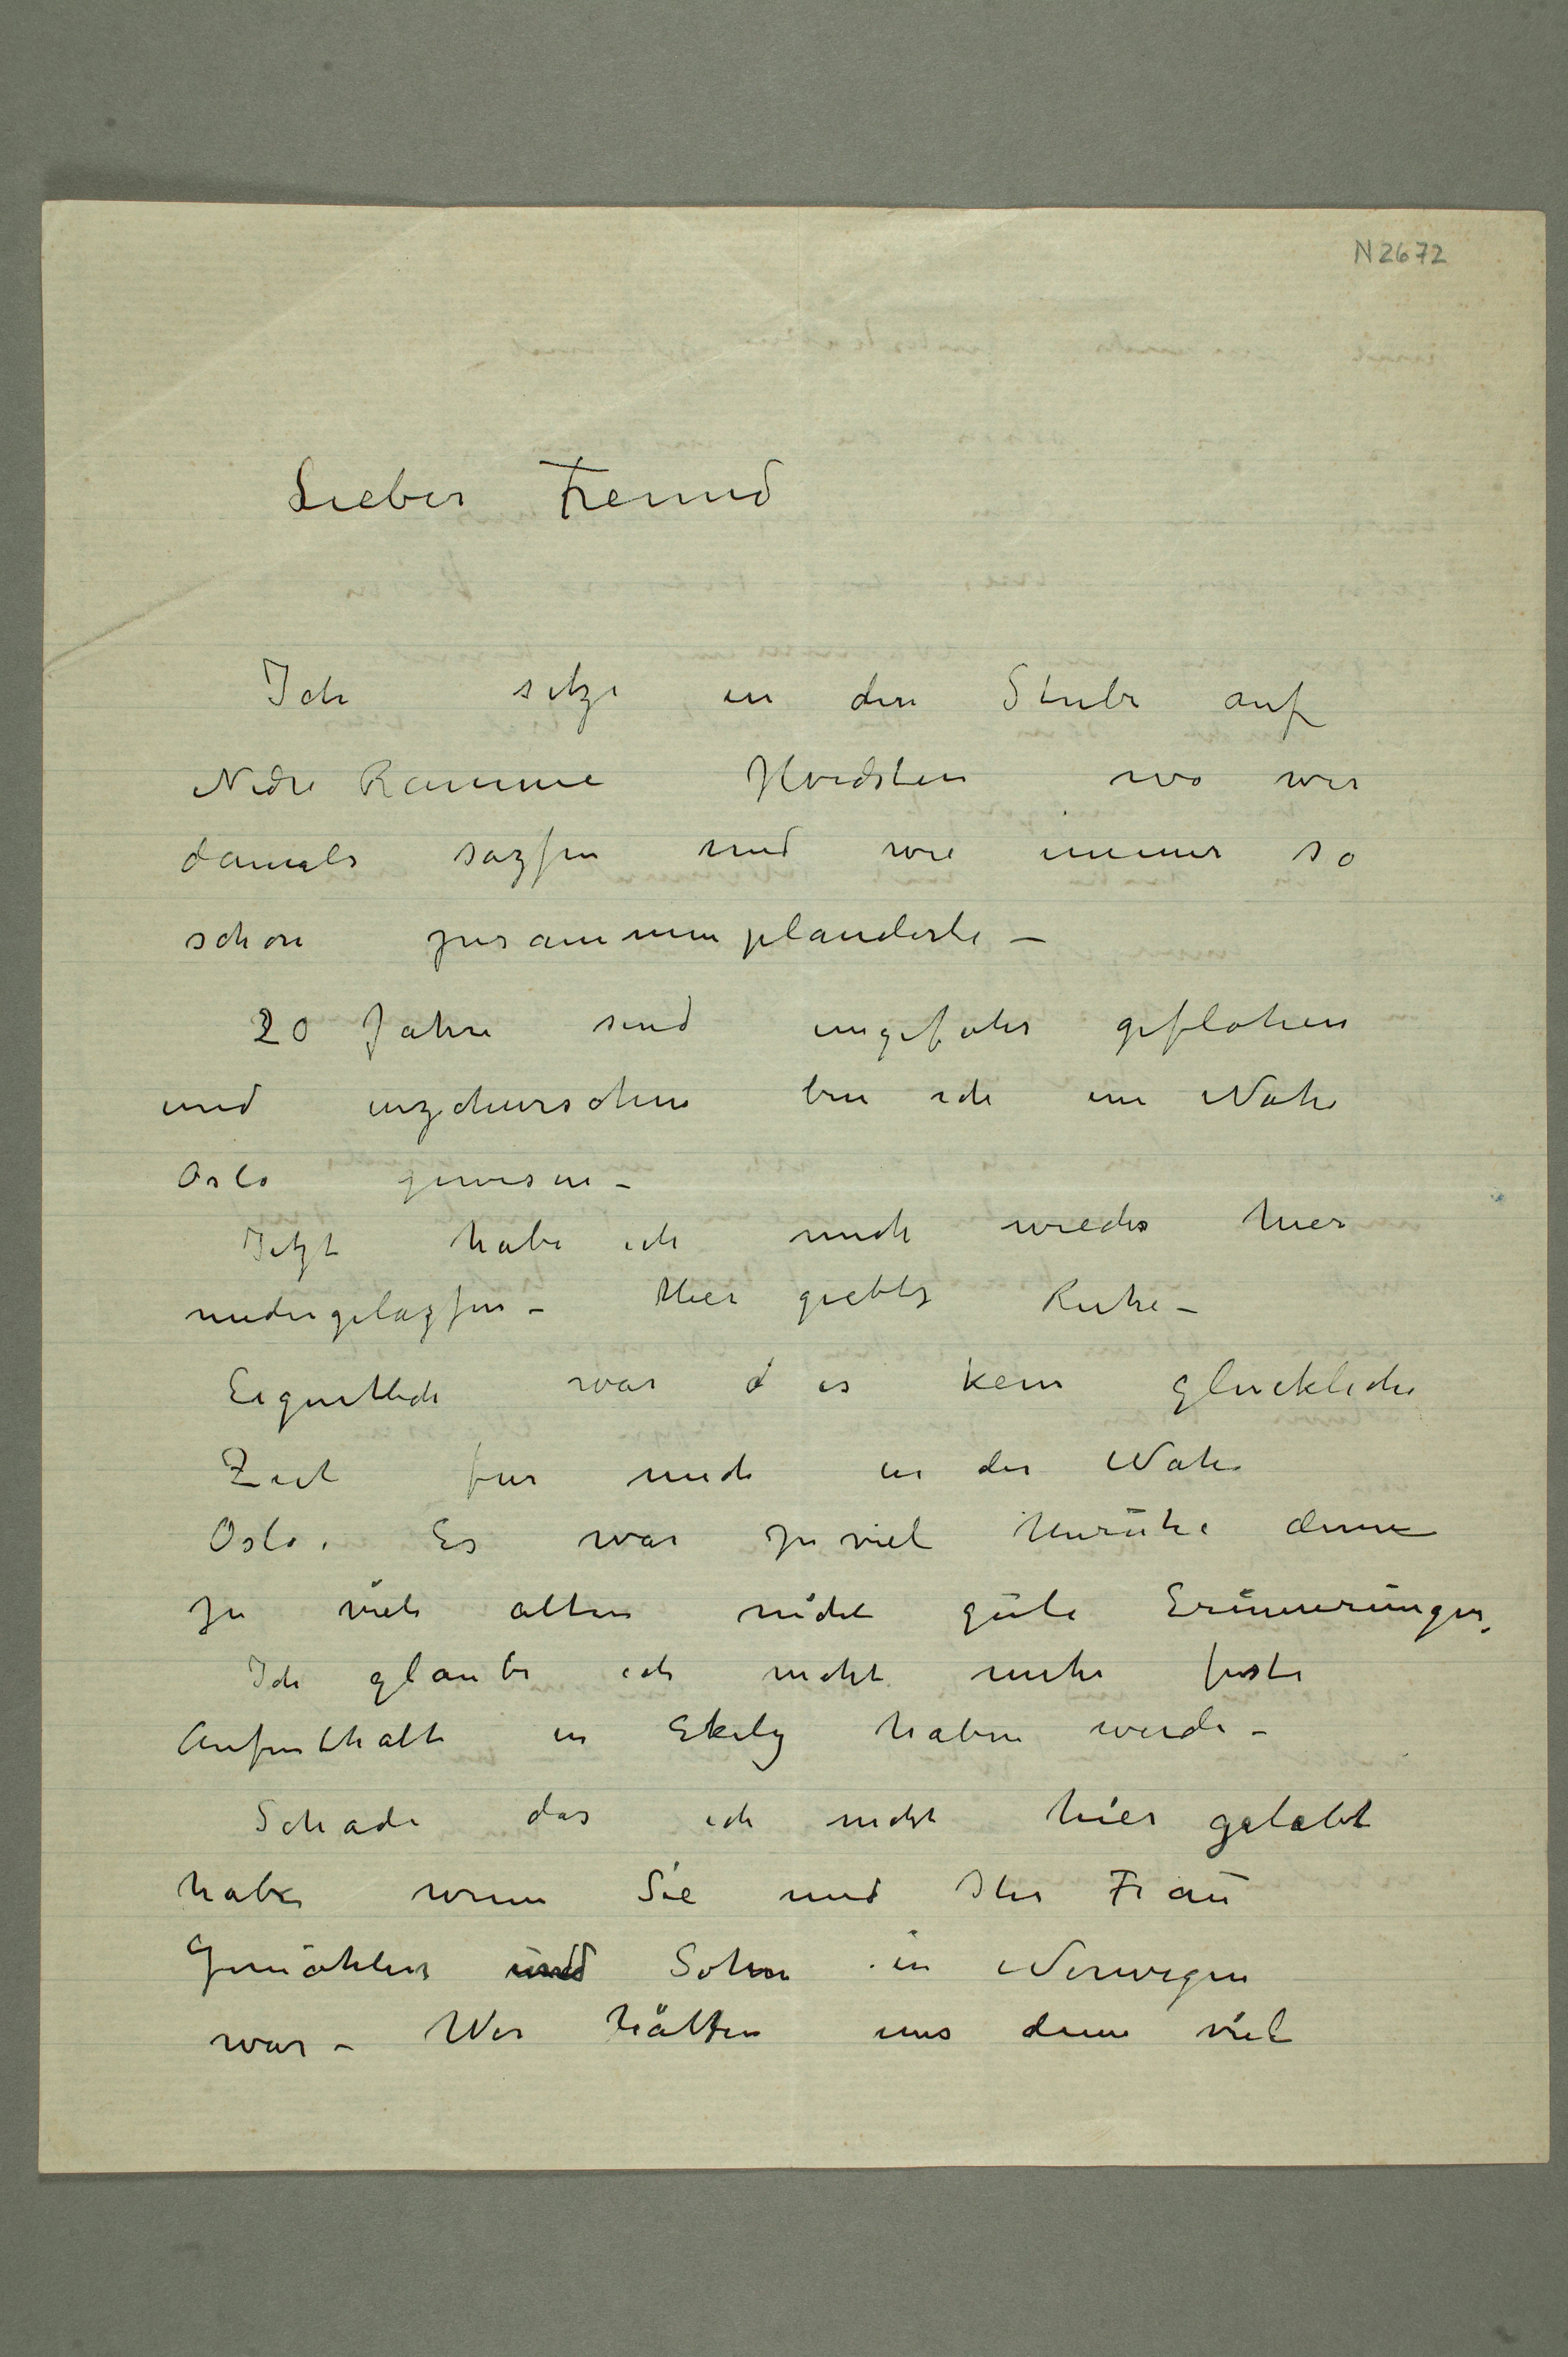 N 2672
Lieber Freund
Ich sitze in den Stube auf
Nedre Ramme Hvidsten wo wir
damals sazsen und wie immer so
schön zusammen plauderte –
20 Jahre sind ungefähr geflohen
und inzchwischen bin ich im Nähe
Oslo gewesen –
Jetzt habe ich mich wieder hier
niedergelazsen – Hier giebts Ruhe –
Eigentlich war es kein glückliche
Zeit für mich in der Nähe
Oslo. Es war zu viel Unruhe denn
zu viele alten nicht gute Erinnerungen.
Ich glaube ich nicht mehr feste
Aufenthalte in Ekely haben werde –
Schade das ich nicht hier gelebt
habe wenn Sie und Ihr Frau
Gemählin und Sohn in Norwegen
war – Wir hätten uns denn viel